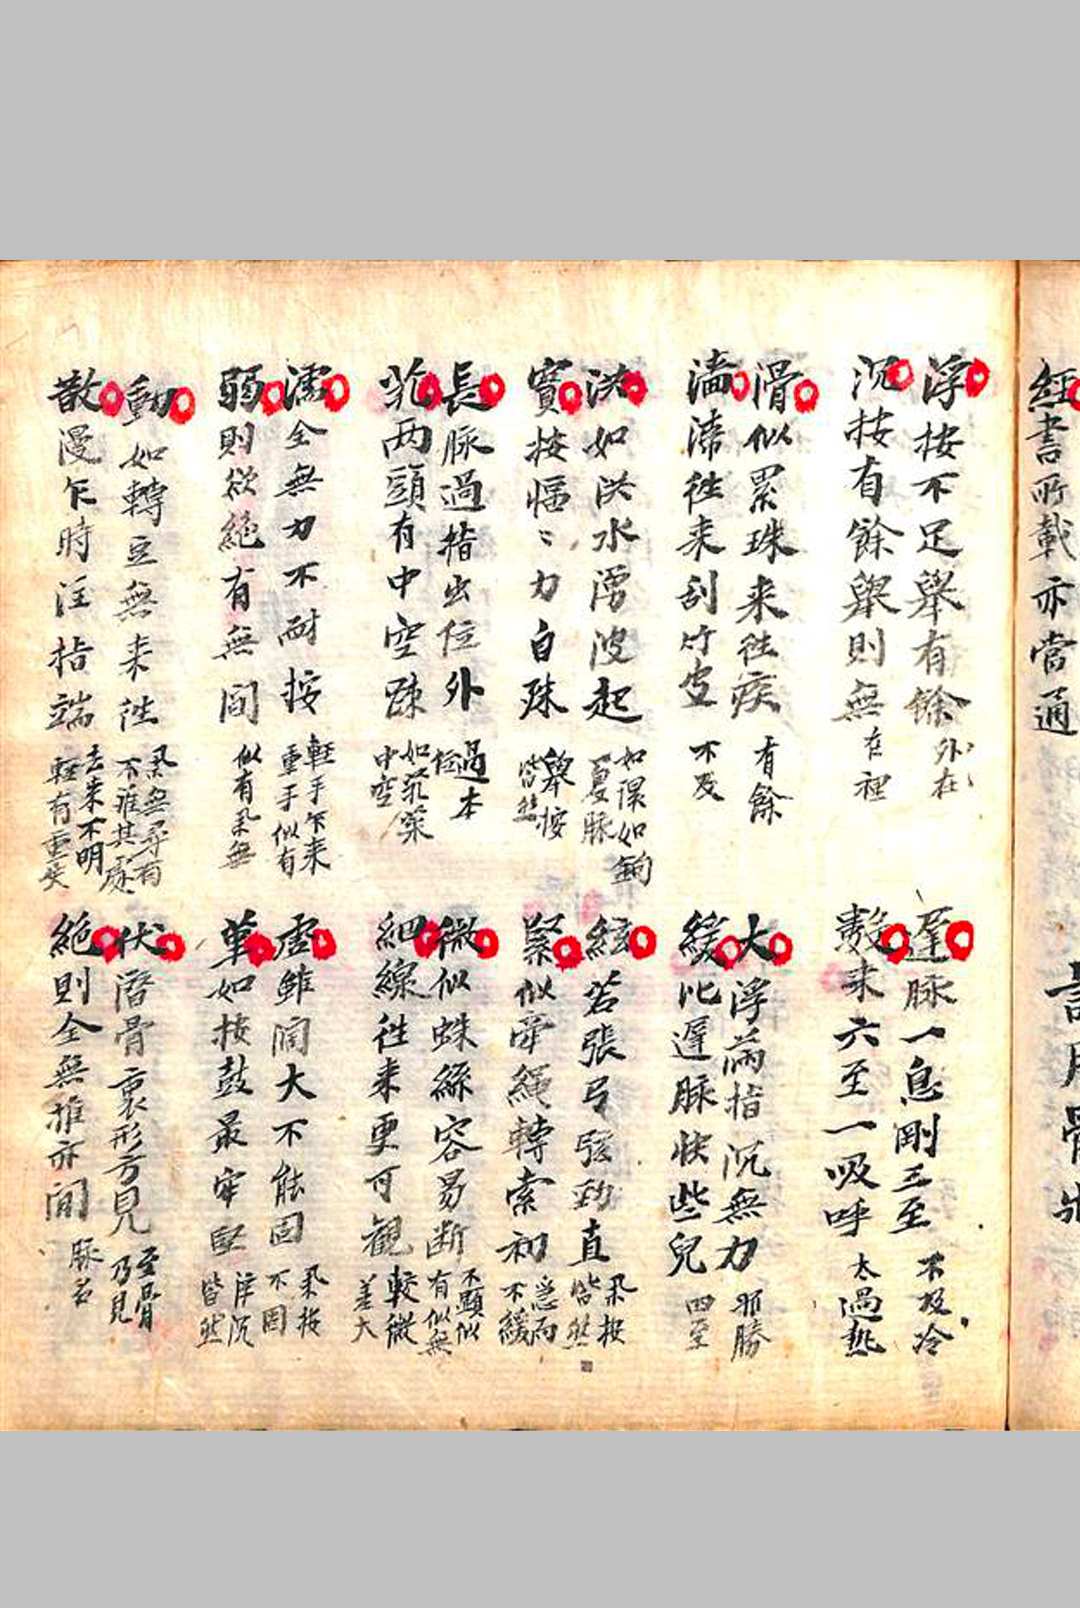 經書所載亦當通
浮按不足舉有餘 外在
沉按有餘舉則無 在裡
遲脉一息剛三至 不及冷
數来六至一吸呼 太過熱
滑似累珠来徃疾 有餘
濇滯徃来刮竹皮 不及
大浮滿指沉無力 邪勝
緩比遲脉快些兒 四至
洪如洪水湧波起 如洪如鉤夏脉
實按愊〻力自殊 舉按皆然
弦若張弓弦勁直 按皆然
緊似牽繩轉索初 急而不緩
長脉過指出位外 過本位
芤两頭有中空踈 如芤菜中空
微似蛛絲容易断 不顯似有似無
細線徃来更可觀 較微差大
濡全無力不耐按 輕手乍来重手似有
弱則欲絶有無間 似有无無
虚雖濶大不能固 按不固
革如按鼓最牢堅 浮沉皆然
動如轉豆無来徃
散漫乍時注指端 去来不明輕有重失
伏潛骨裏形方見 至骨乃見
絶則全無推亦間 脉名